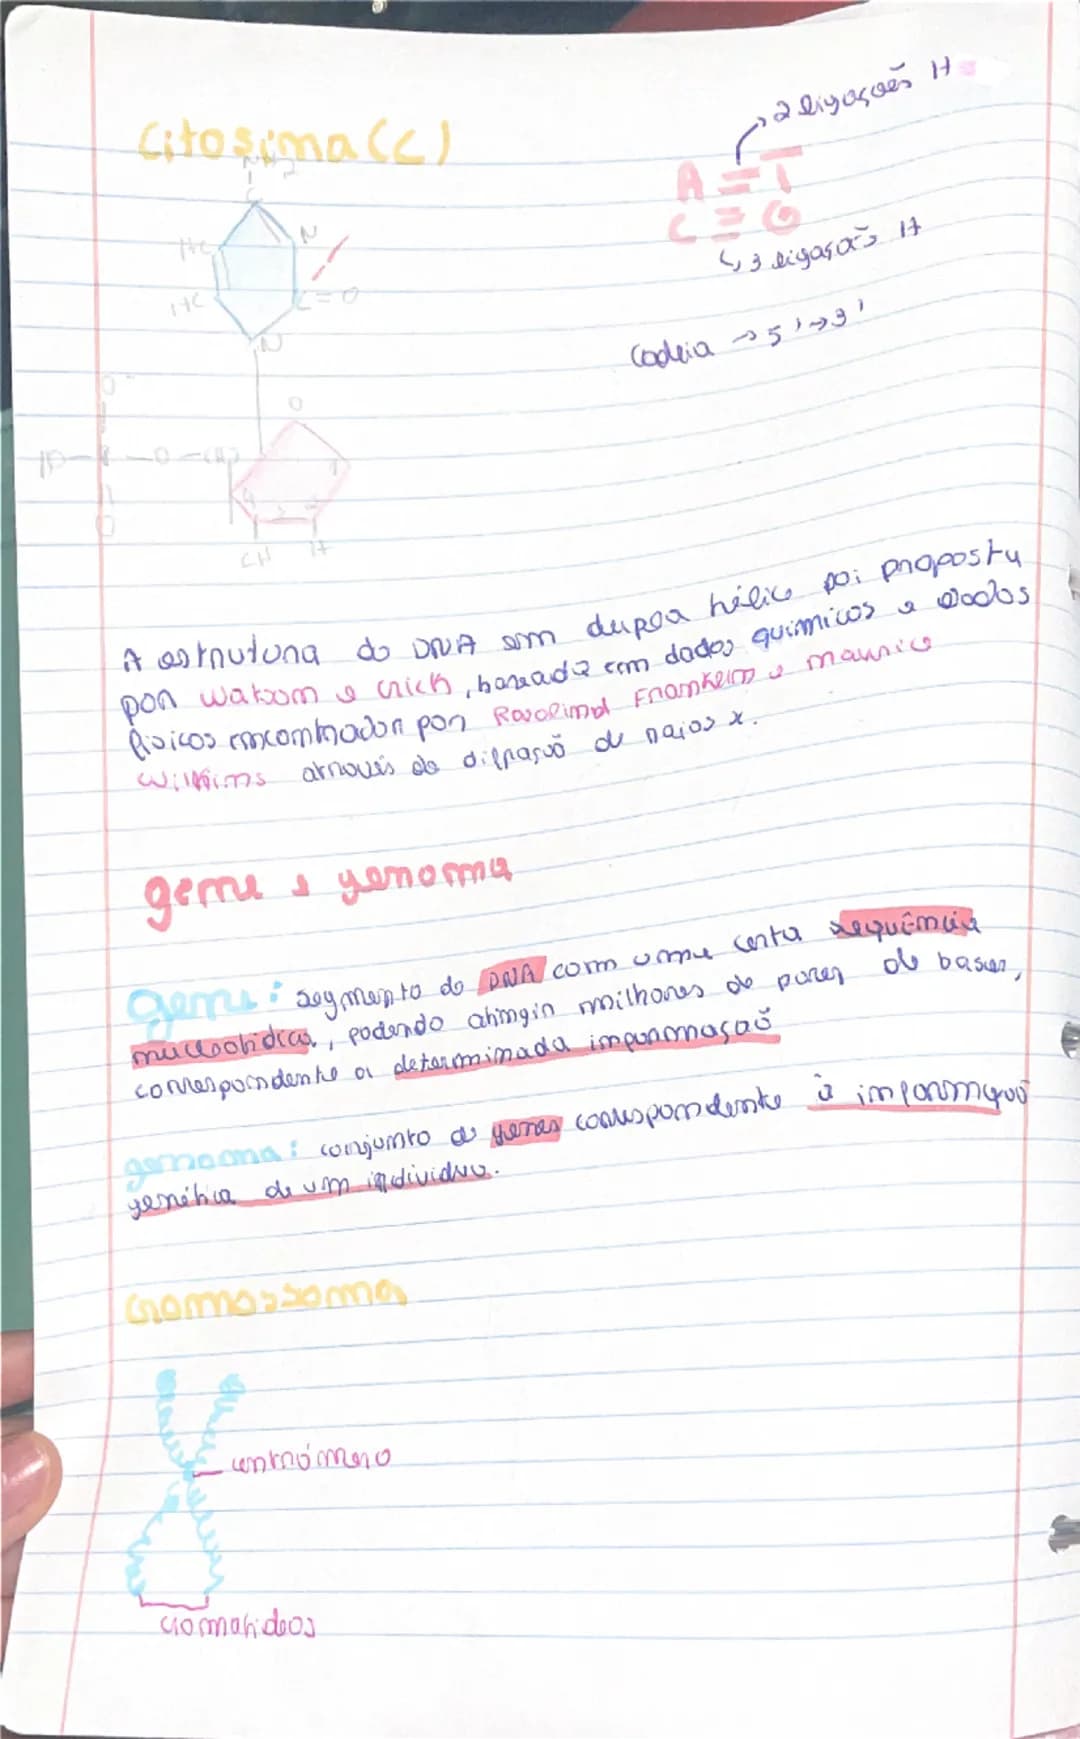 Citosina (C)
NH2
C
HC
N
HC
C=O
N
O-
O-P-O-CH2
O
O
CH H
→ 2 ligações H
A = T
C ≡ G
↳ 3 ligações H
Cadeia → 5' → 3'
A estrutura do DNA em dupla hélice foi proposta
por Watson e Crick, baseada em dados químicos e dados
físicos encontrados por Rosalind Franklin e Maurice
Wilkins através de difração de raios x.
gene e genoma
gene: segmento do DNA com uma certa sequência
nucleotídica, podendo atingir milhares de pares de bases,
correspondente a determinada informação
genoma: conjunto de genes correspondente à informação
genética de um indivíduo.
Cromossoma
centrómero
cromatídeos